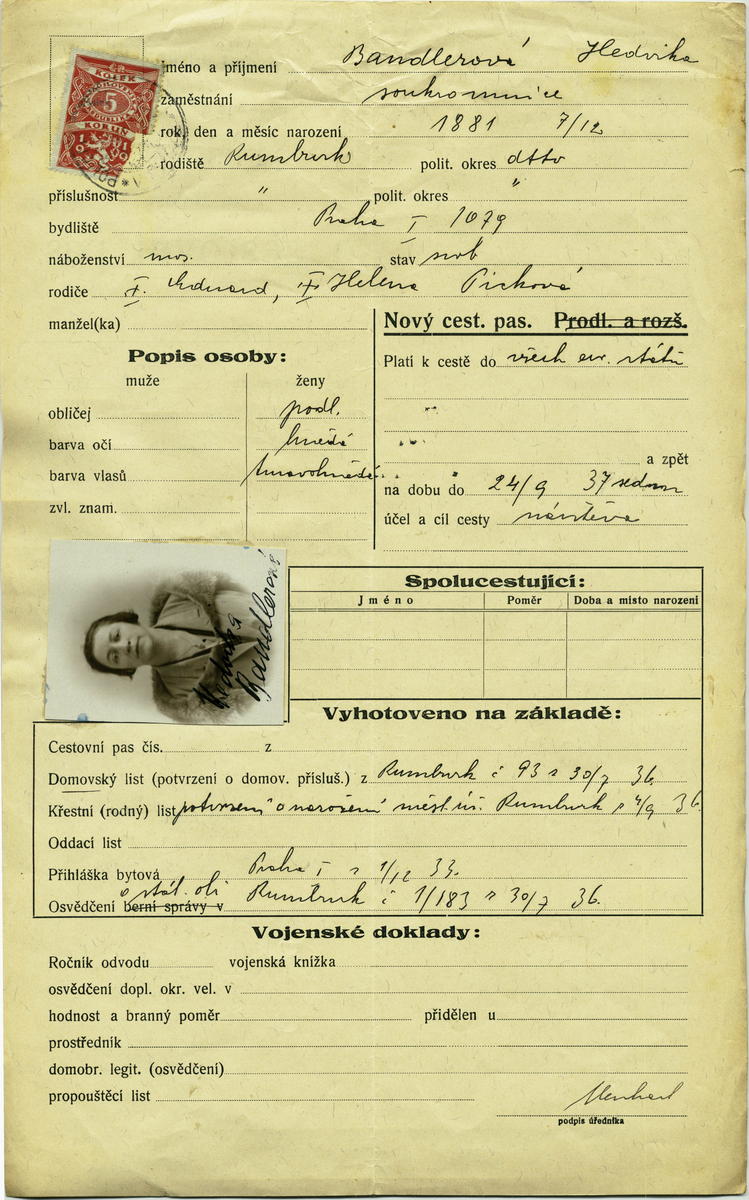 KOLEK
5
KORUN
1919
jméno a příjmení Bandlerová Hedvika
zaměstnání soukromnice
rok, den a měsíc narození 1881 7/12
rodiště Rumburk polit. okres dtto
příslušnost " polit. okres "
bydliště Praha I 1079
náboženství mos. stav svob
rodiče Eduard, Helena Picková
manžel(ka)
Nový cest. pas. Prodl. a rozš.
Popis osoby:
muže ženy
obličej podl.
barva očí hnědé
barva vlasů tmavohnědé
zvl. znam.
Platí k cestě do všech evr. států
a zpět
na dobu do 24/9 37
účel a cíl cesty návštěva
Hedvika
Bandlerová
Spolucestující:
Jméno Poměr Doba a místo narození
Vyhotoveno na základě:
Cestovní pas čís. z
Domovský list (potvrzení o domov. přísluš.) z Rumburk č 93 z 30/7 36.
Křestní (rodný) list potvrzení o narození měst. úř. Rumburk z 4/9 36.
Oddací list
Přihláška bytová Praha I z 1/12 33.
o stál.
Osvědčení berní správy v Rumburk č 1/183 z 30/7 36.
Vojenské doklady:
Ročník odvodu vojenská knížka
osvědčení dopl. okr. vel. v
hodnost a branný poměr přidělen u
prostředník
domobr. legit. (osvědčení)
propouštěcí list
podpis úředníka